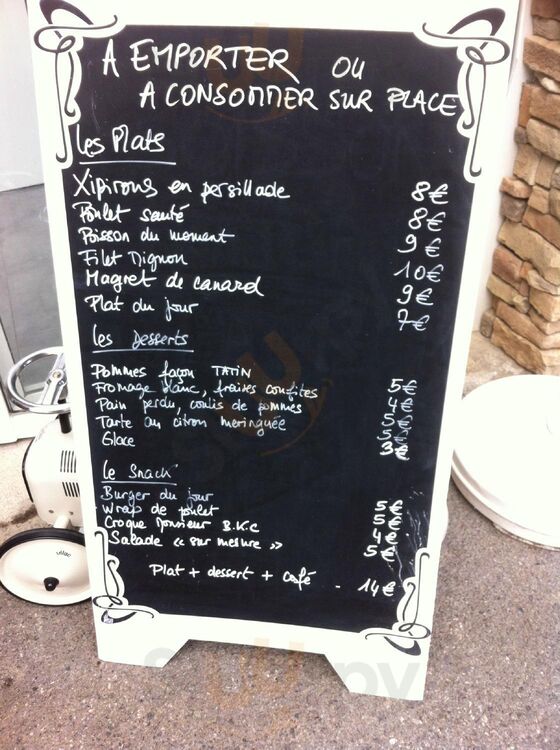 A EMPORTER OU
A CONSOMMER SUR PLACE
Les Plats
Xipirons en persillade 8€
Poulet sauté 8€
Poisson du moment 9€
Filet Mignon 10€
Magret de canard 9€
Plat du jour 7€
Les Desserts
Pommes façon TATIN 5€
Fromage blanc, fraises confites 4€
Pain perdu, coulis de pommes 5€
Tarte au citron meringuée 5€
Glace 3€
Le Snack
Burger du jour 5€
Wrap de poulet 5€
Croque Monsieur B.K.C 4€
Salade « sur mesure » 5€
Plat + dessert + café - 14€